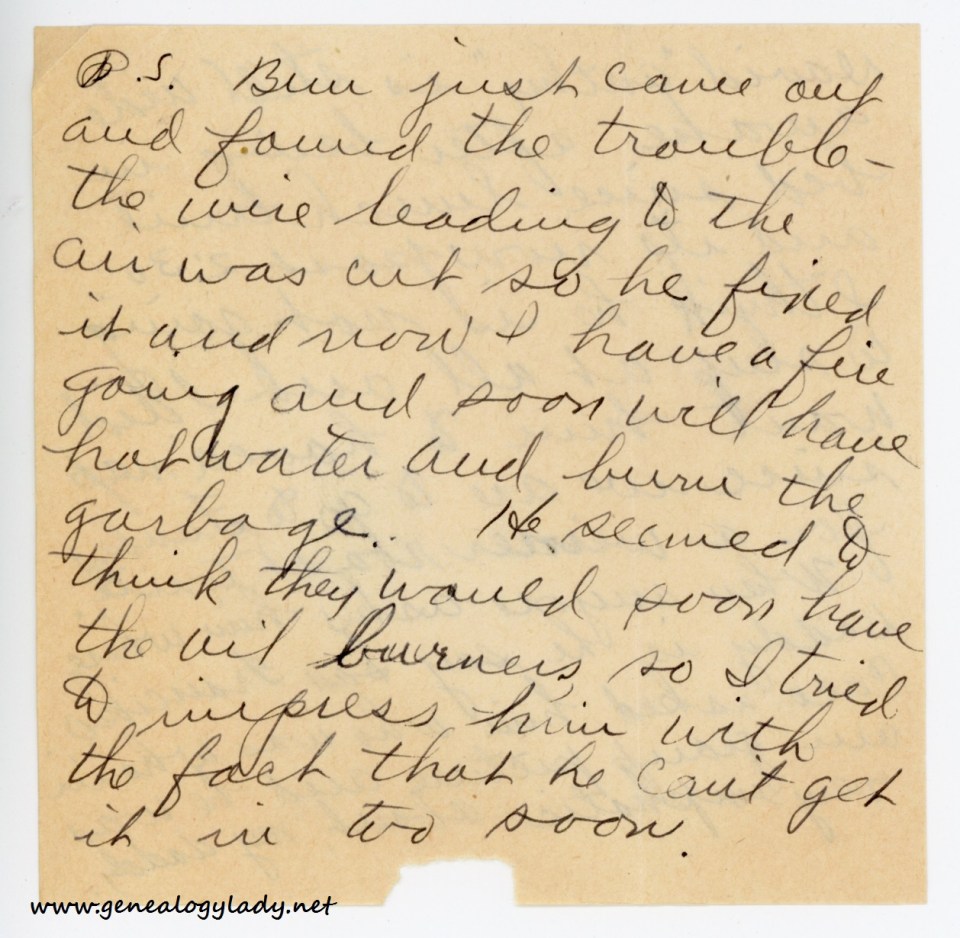 P.S. Bun just came out
and found the trouble –
the wire leading to the
air was cut so he fixed
it and now I have a fire
going and soon will have
hot water and burn the
garbage. He seemed to
think they would soon have
the oil burners so I tried
to impress him with
the fact that he can't get
it in too soon.
www.genealogylady.net